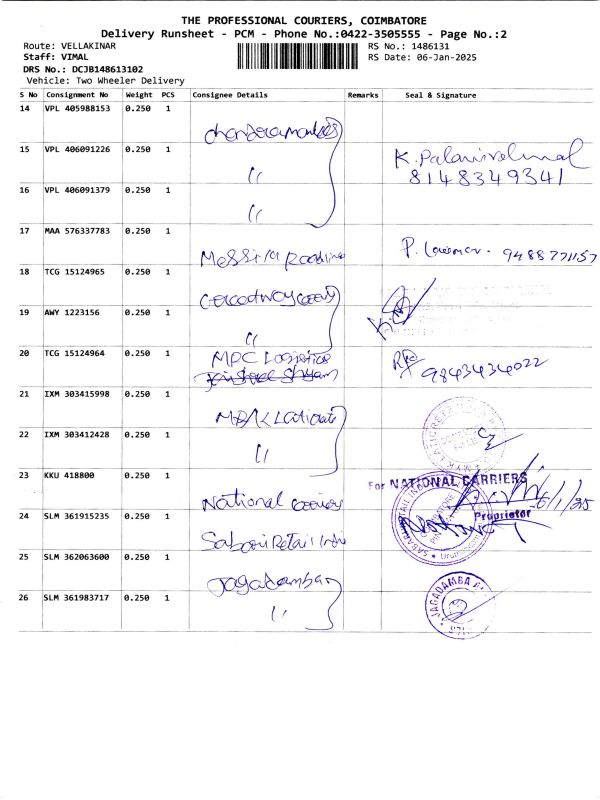 THE PROFESSIONAL COURIERS, COIMBATORE
Delivery Runsheet - PCM - Phone No.:0422-3505555 - Page No.:2
Route: VELLAKINAR
RS No.: 1486131
Staff: VIMAL
RS Date: 06-Jan-2025
DRS No.: DCJB148613102
Vehicle: Two Wheeler Delivery
S No Consignment No Weight PCS Consignee Details Remarks Seal & Signature
14 VPL 405988153 0.250 1
15 VPL 406091226 0.250 1 " K. Palanivelmal
8148349341
16 VPL 406091379 0.250 1 "
17 MAA 576337783 0.250 1 P. 9488771157
18 TCG 15124965 0.250 1
19 AWY 1223156 0.250 1 "
20 TCG 15124964 0.250 1 MDC Logistics 9843434022
21 IXM 303415998 0.250 1
22 IXM 303412428 0.250 1 "
23 KKU 418800 0.250 1 National For NATIONAL CARRIERS
6/1/25
Proprietor
24 SLM 361915235 0.250 1 Sabari Retail
25 SLM 362063600 0.250 1 Jagadamba
26 SLM 361983717 0.250 1 " JAGADAMBA